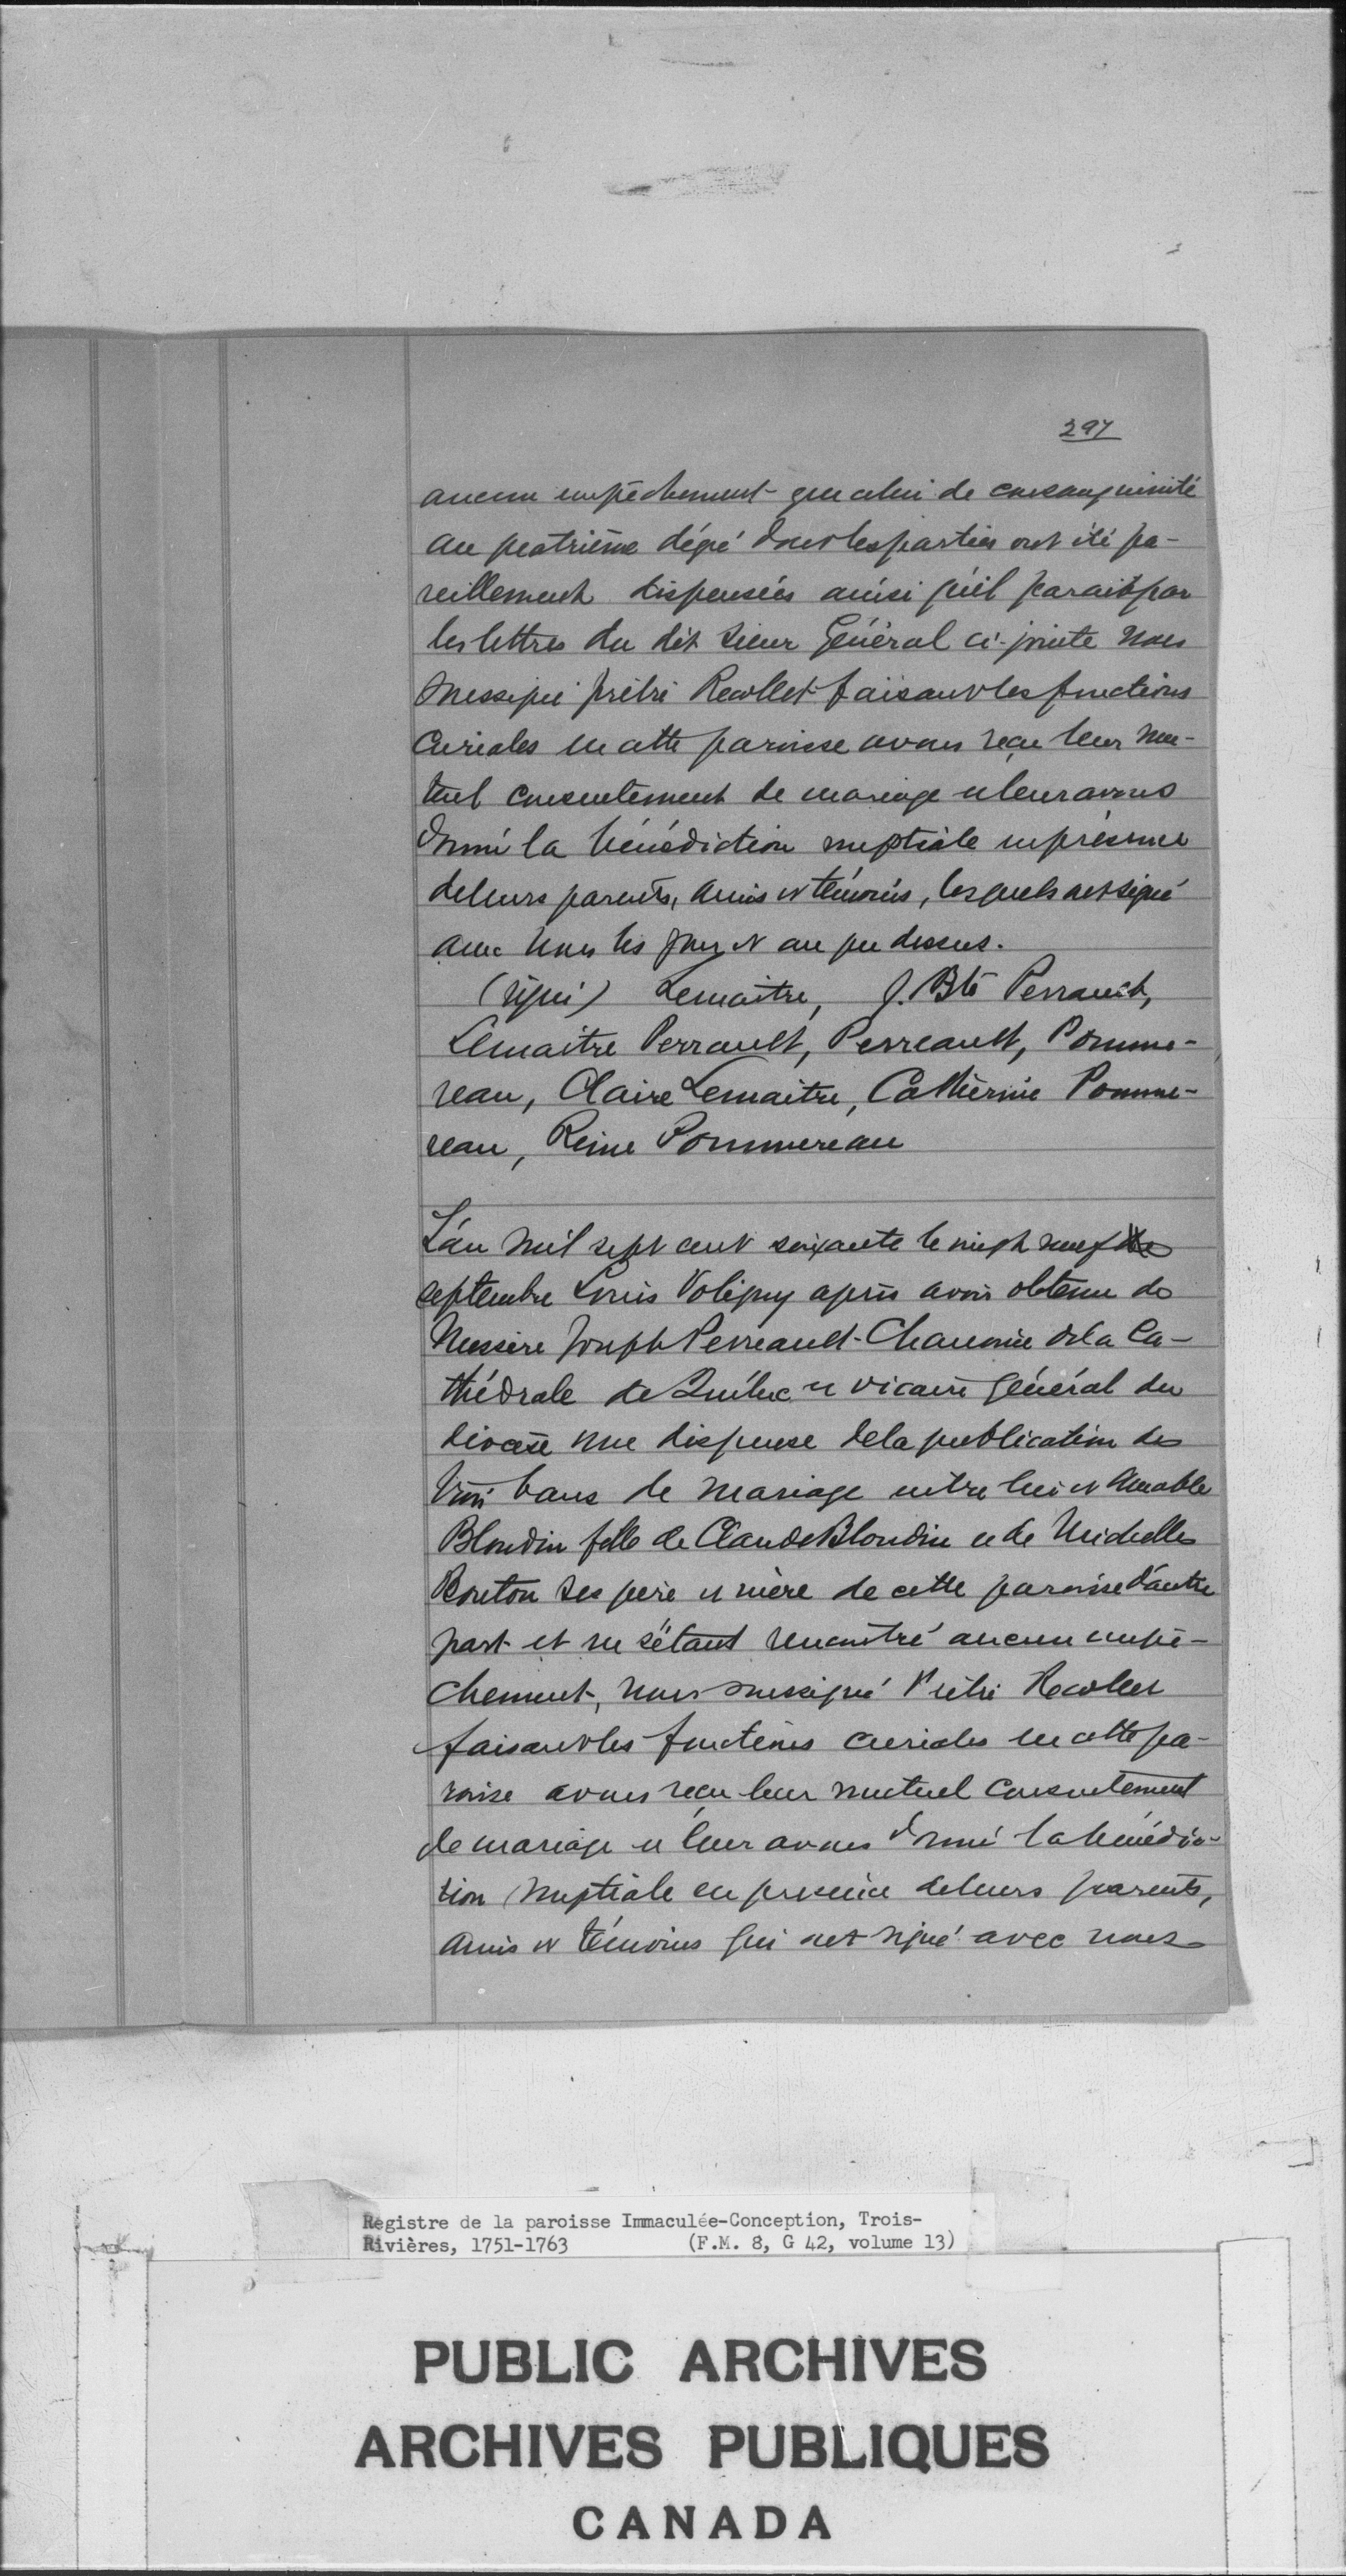 297
aucun empêchement que celui de consanguinité
au quatrième dégré dont les parties ont été pa-
reillement dispensées ainsi qu'il parait par
les lettres du dit sieur Général ci-jointe nous
soussigné prêtre Recollet faisant les fonctions
curiales en cette paroisse avons reçu leur mu-
tuel consentement de mariage et leur avons
donné la bénédiction nuptiale en présence
de leurs parents, amis et témoins, lesquels ont signé
avec nous les jour et an que dessus.
(signé) Lemaitre, J. Bte Perrault,
Lemaitre Perrault, Perreault, Pomme-
reau, Claire Lemaitre, Catherine Pomme-
reau, Reine Pommereau
L'an mil sept cent soixante le vingt neuf de
septembre Louis Voligny après avoir obtenu de
Messire Joseph Perreault Chanoine de la Ca-
thédrale de Québec et vicaire général du
diocèse une dispense de la publication des
trois bans de mariage entre lui et Amable
Blondin fille de Claude Blondin et de Michelle
Bouton ses père et mère de cette paroisse d'autre
part et ne s'étant rencontré aucun empê-
chement, nous soussigné Prêtre Recollet
faisant les fonctions curiales en cette pa-
roisse avons reçu leur mutuel consentement
de mariage et leur avons donné la bénédic-
tion nuptiale en presence de leurs parents,
amis et témoins qui ont signé avec nous
Registre de la paroisse Immaculée-Conception, Trois-
Rivières, 1751-1763 (F.M. 8, G 42, volume 13)
PUBLIC ARCHIVES
ARCHIVES PUBLIQUES
CANADA